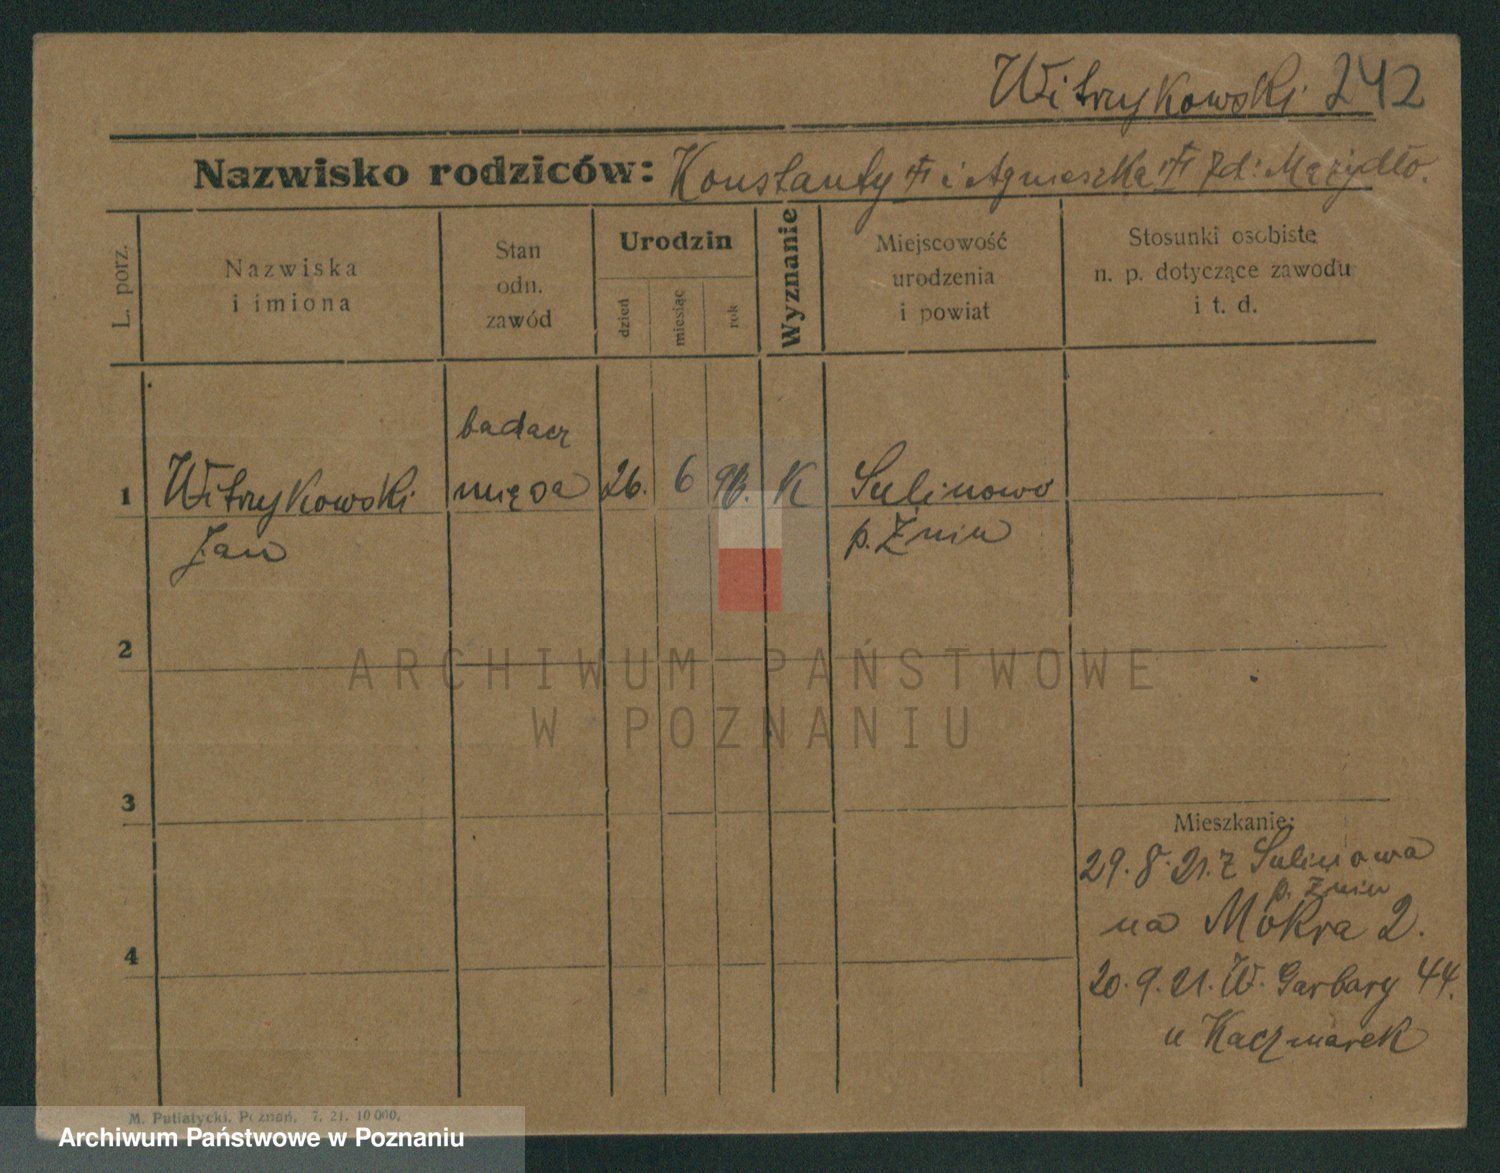 Witrykowski 242
Nazwisko rodziców: Konstanty i Agnieszka Zd: Mążydło.
L. porz.
Nazwiska
i imiona
Stan
odn.
zawód
Urodzin
dzień
miesiąc
rok
Wyznanie
Miejscowość
urodzenia
i powiat
Stosunki osobiste
n. p. dotyczące zawodu
i t. d.
badacz
1 Witrykowski mięsa 26. 6 K Sulinowo
Jan p. Żnin
2
ARCHIWUM PAŃSTWOWE
W POZNANIU
3
Mieszkanie:
29.8.21. z Sulinowa
p. Żnin
na Mokra 2.
4
20.9.21. W. Garbary 44.
u Kaczmarek
M. Putiatycki, Poznań, 7. 21. 10 000.
Archiwum Państwowe w Poznaniu